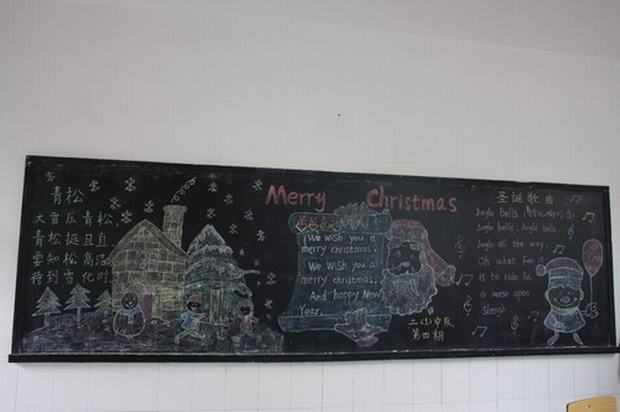 青松
大雪压青松
青松挺且直
要知松高洁
待到雪化时
Merry Christmas
We wish you a
merry christmas.
We wish you a
merry christmas,
And happy New
Year.
二(3)中队
第四期
圣诞歌曲
Jingle bells
Jingle bells, jingle bells
Jingle all the way
Oh what fun it
is to ride in
a horse open
Sleigh